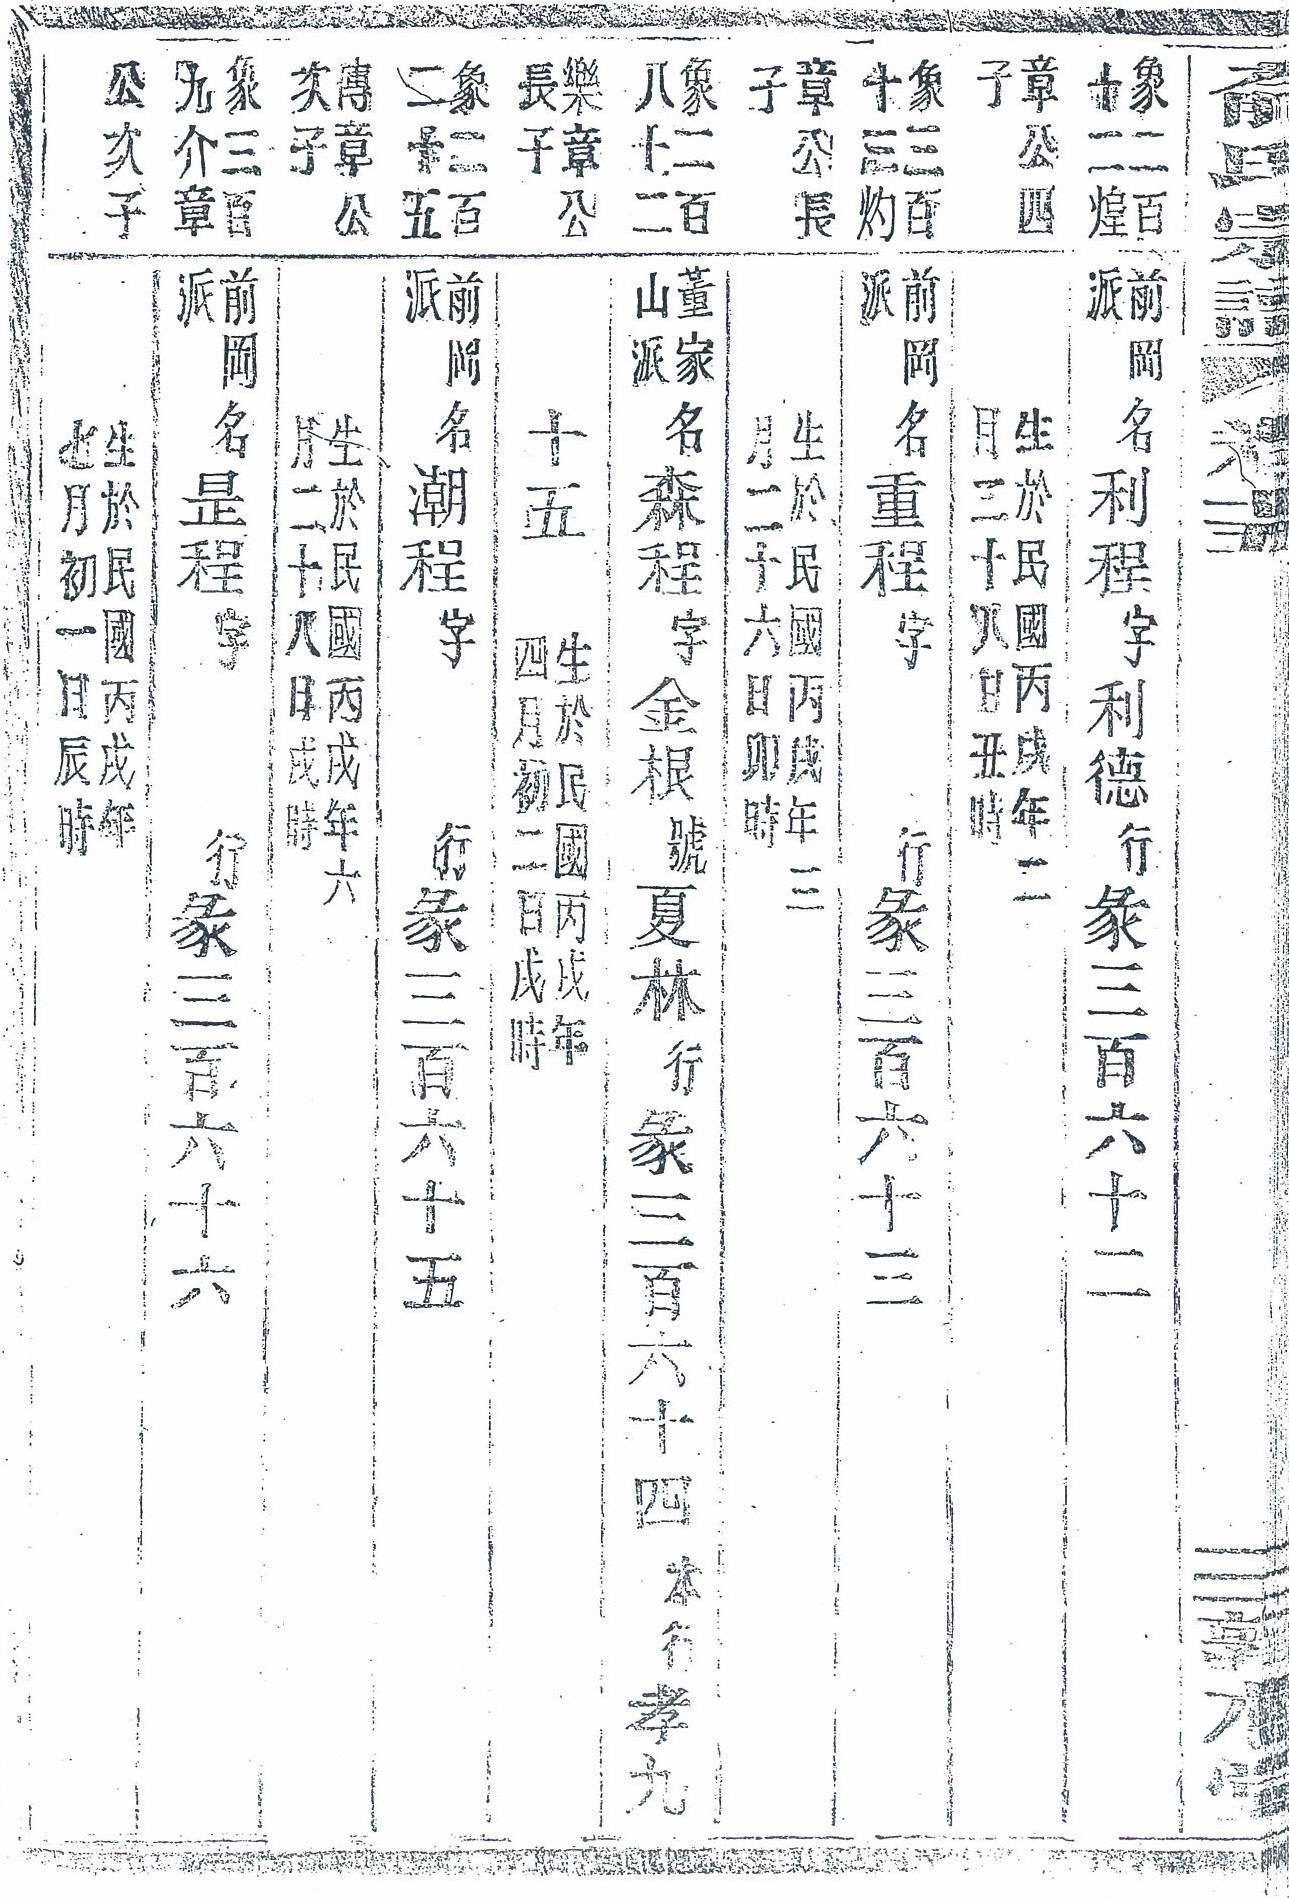 象二百
十二煌
章公四
子
前岡
派
名利程字利德行彖三百六十二
生於民國丙戌年二
月二十八日丑時
象三百
十三灼
章公長
子
前岡
派
名重程字 行彖三百六十三
生於民國丙戌年三
月二十六日卯時
象二百
八十二
樂章公
長子
董家
山派
名森程字金根號夏林行彖三百六十四本行孝九
十五
生於民國丙戌年
四月初二日戌時
象二百
二十五
傳章公
次子
前岡
派
名潮程字 行彖三百六十五
生於民國丙戌年六
月二十八日戌時
象三百
九介章
公次子
前岡
派
名是程字 行彖三百六十六
生於民國丙戌年
七月初一日辰時